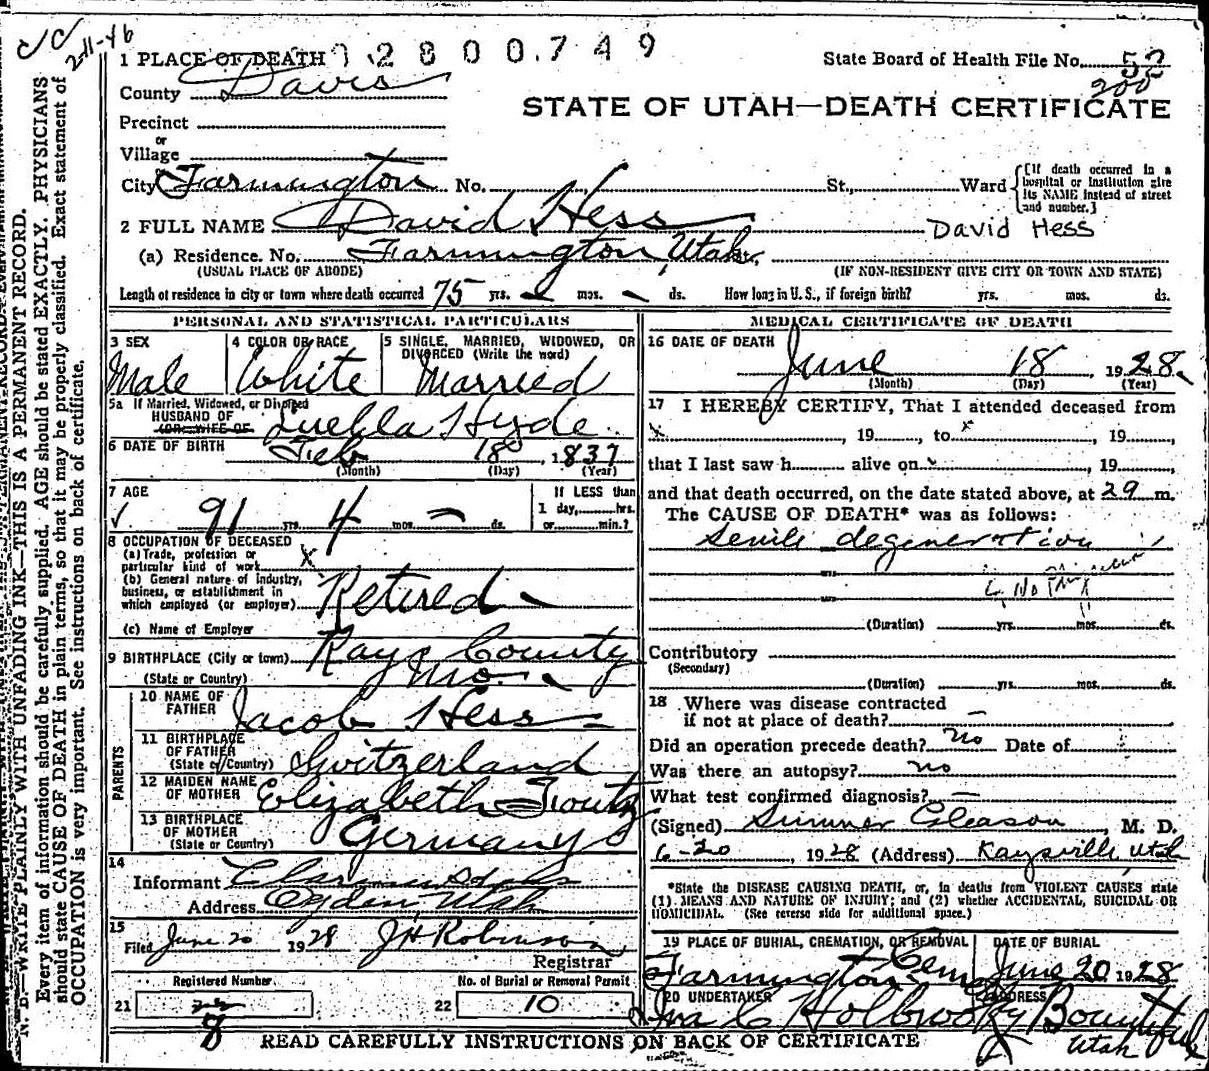 2-11-46
1 PLACE OF DEATH 2800749
State Board of Health File No. 52
200
County Davis
STATE OF UTAH—DEATH CERTIFICATE
Precinct
or
Village
City Farmington No. St., Ward
[If death occurred in a hospital or institution give its NAME instead of street and number.]
2 FULL NAME David Hess David Hess
(a) Residence. No. Farmington, Utah.
(USUAL PLACE OF ABODE) (IF NON-RESIDENT GIVE CITY OR TOWN AND STATE)
Length of residence in city or town where death occurred 75 yrs. – mos. – ds. How long in U. S., if foreign birth? yrs. mos. ds.
PERSONAL AND STATISTICAL PARTICULARS
3 SEX 4 COLOR OR RACE 5 SINGLE, MARRIED, WIDOWED, OR DIVORCED (Write the word)
Male White Married
5a If Married, Widowed, or Divorced
HUSBAND OF
(OR) WIFE OF Luella Hyde
6 DATE OF BIRTH Feb 18, 1837
(Month) (Day) (Year)
7 AGE If LESS than
1 day, hrs.
91 yrs. 4 mos. – ds. or min.?
8 OCCUPATION OF DECEASED
(a) Trade, profession or
particular kind of work x
(b) General nature of industry,
business, or establishment in
which employed (or employer) Retired
(c) Name of Employer
9 BIRTHPLACE (City or town) Rays County
(State or Country) Mo.
PARENTS
10 NAME OF
FATHER Jacob Hess
11 BIRTHPLACE
OF FATHER
(State or Country) Switzerland
12 MAIDEN NAME
OF MOTHER Elizabeth Foutz
13 BIRTHPLACE
OF MOTHER
(State or Country) Germany
14
Informant
Address Ogden Utah
15
Filed June 20 1928 J H Robinson
Registrar
Registered Number No. of Burial or Removal Permit
21 8 22 10
MEDICAL CERTIFICATE OF DEATH
16 DATE OF DEATH
June 18, 1928.
(Month) (Day) (Year)
17 I HEREBY CERTIFY, That I attended deceased from
x, 19, to x, 19,
that I last saw h alive on, 19,
and that death occurred, on the date stated above, at 29 m.
The CAUSE OF DEATH* was as follows:
Senile degeneration
(Duration) yrs. mos. ds.
Contributory
(Secondary)
(Duration) yrs. mos. ds.
18 Where was disease contracted
if not at place of death? –
Did an operation precede death? no Date of
Was there an autopsy? no
What test confirmed diagnosis? –
(Signed) Sumner Gleason, M. D.
6-20, 1928 (Address) Kaysville, Utah
*State the DISEASE CAUSING DEATH, or, in deaths from VIOLENT CAUSES state
(1) MEANS AND NATURE OF INJURY; and (2) whether ACCIDENTAL, SUICIDAL OR
HOMICIDAL. (See reverse side for additional space.)
19 PLACE OF BURIAL, CREMATION, OR REMOVAL DATE OF BURIAL
Farmington Cem June 20 1928
20 UNDERTAKER ADDRESS
Ira C Holbrook Bountiful
Utah
READ CAREFULLY INSTRUCTIONS ON BACK OF CERTIFICATE
N. B.—WRITE PLAINLY WITH UNFADING INK—THIS IS A PERMANENT RECORD.
Every item of information should be carefully supplied. AGE should be stated EXACTLY. PHYSICIANS
should state CAUSE OF DEATH in plain terms, so that it may be properly classified. Exact statement of
OCCUPATION is very important. See instructions on back of certificate.